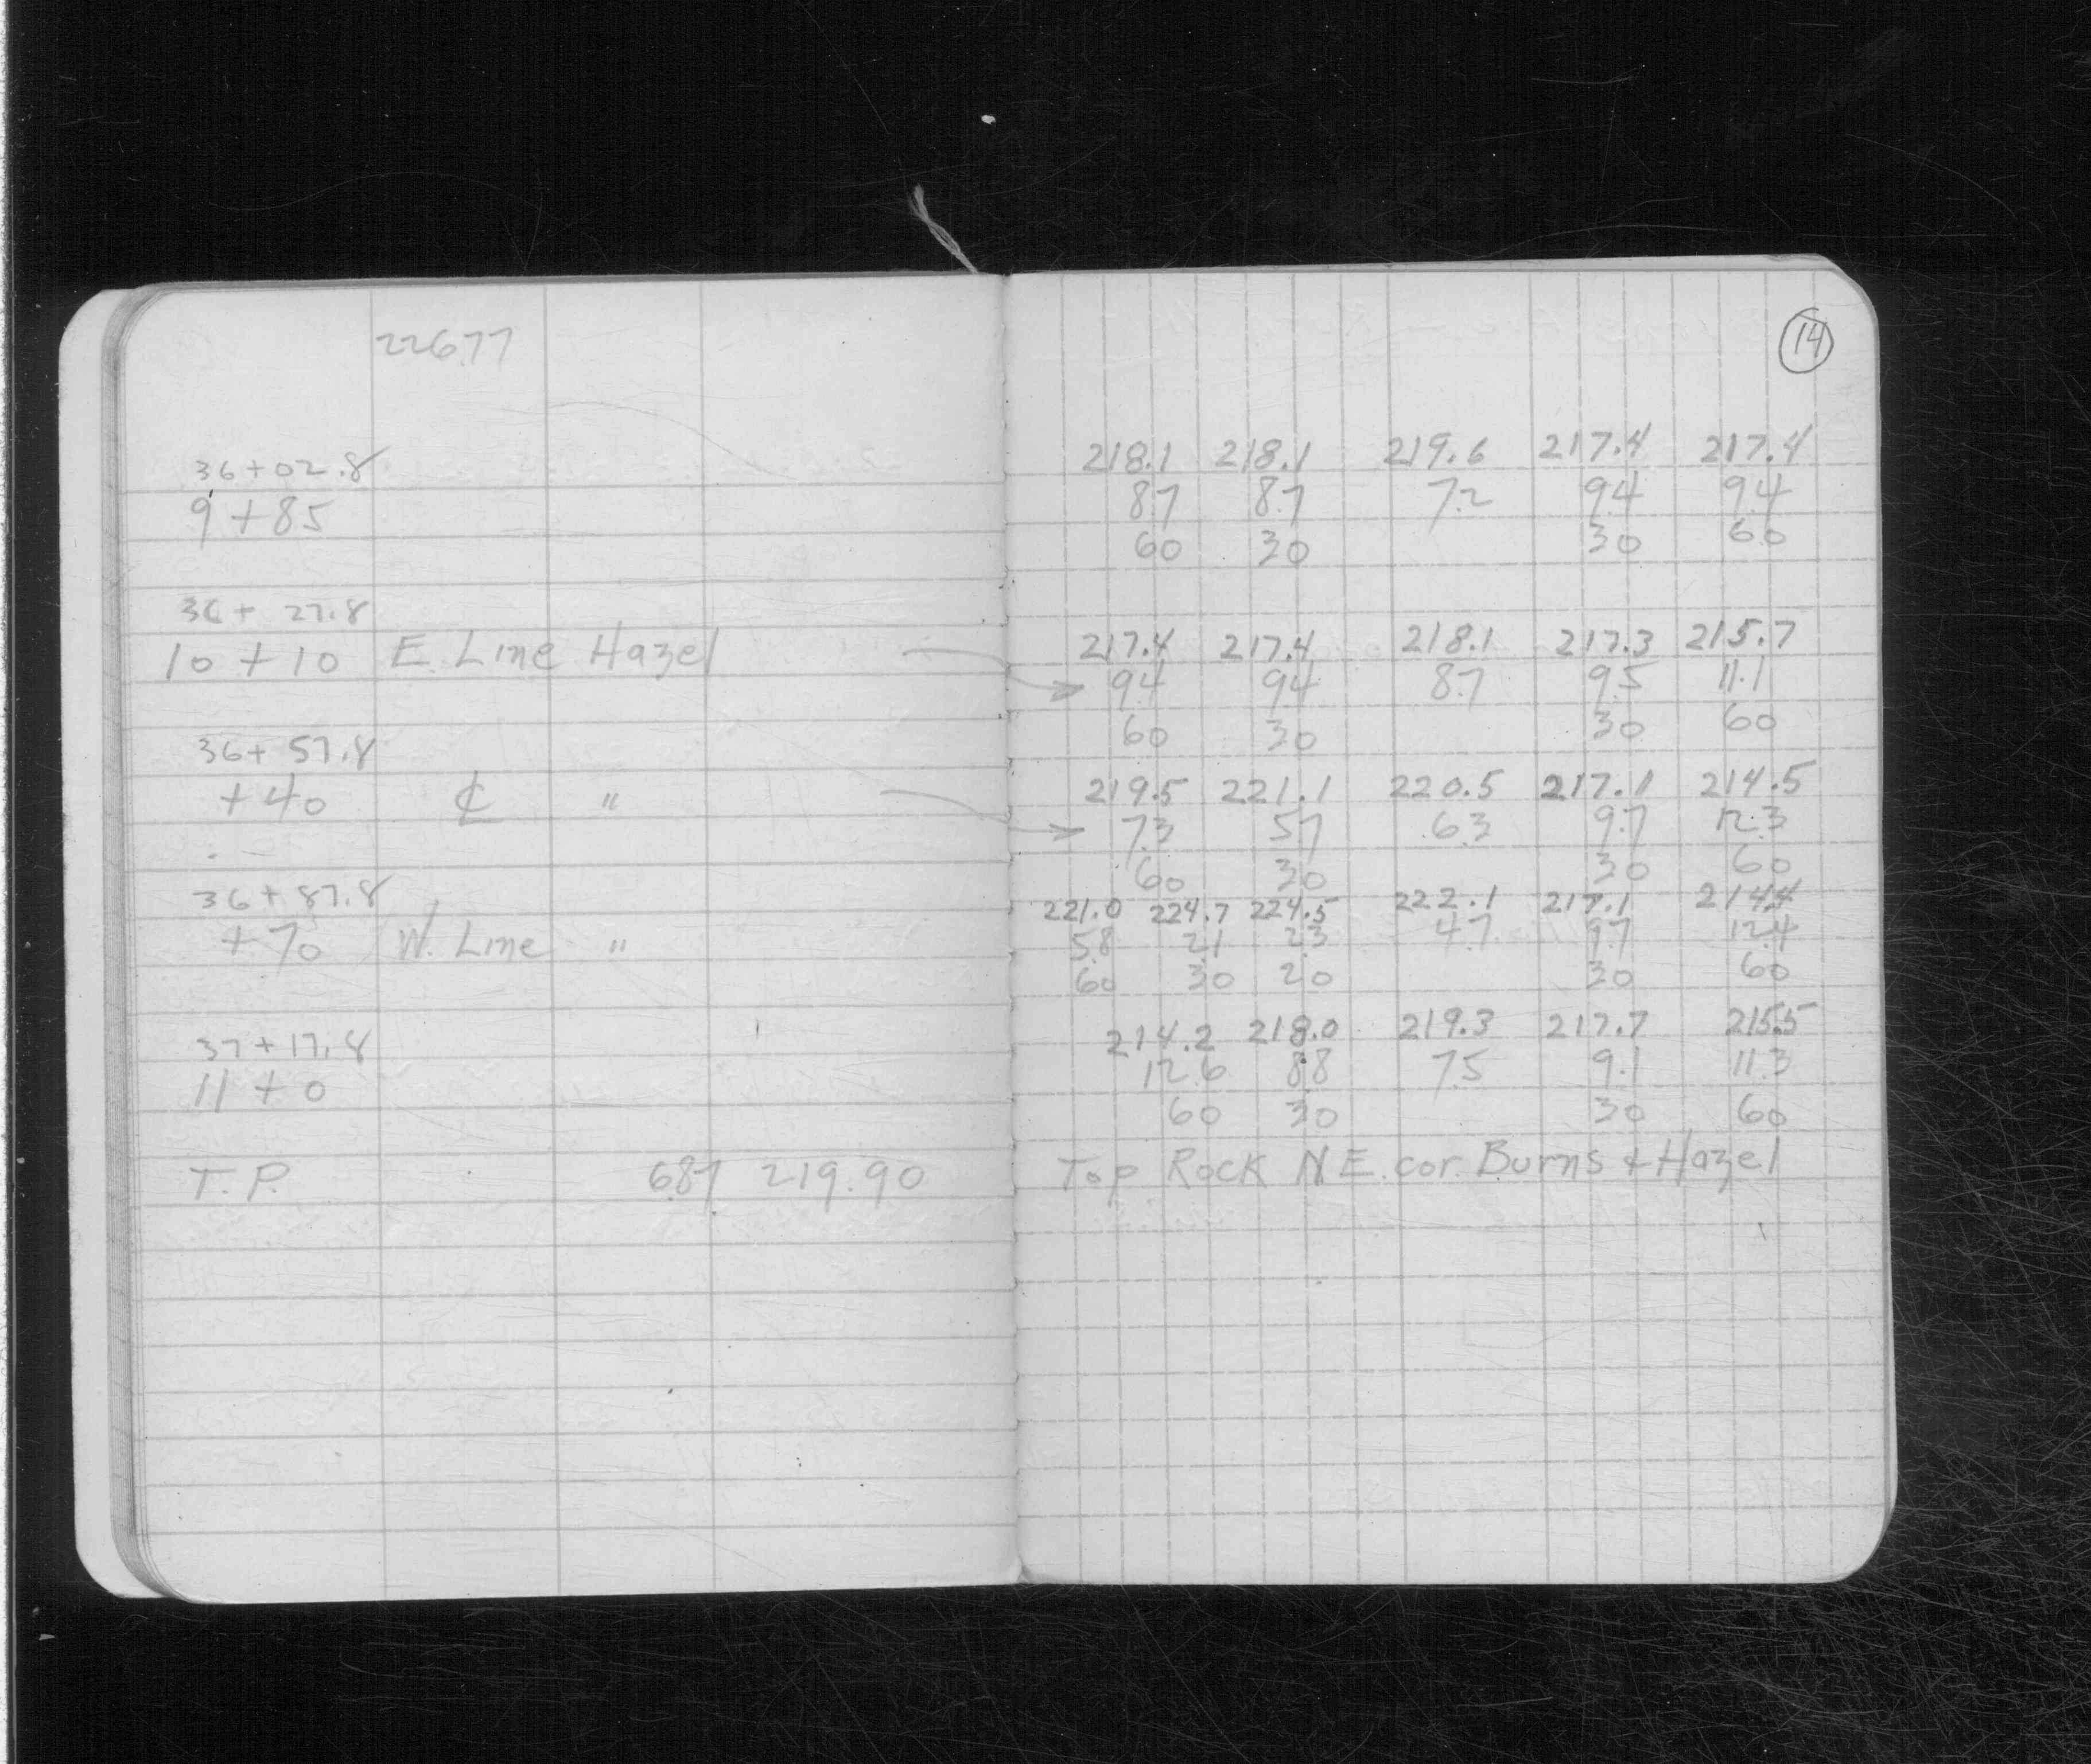 226.77
36+02.8
9+85
36+27.8
10+10 E. Line Hazel
36+57.8
+40 ℄ "
36+87.8
+70 W. Line "
37+17.8
11+0
T.P. 6.87 219.90
14
218.1 218.1 219.6 217.4 217.4
8.7 8.7 7.2 9.4 9.4
60 30 30 60
217.4 217.4 218.1 217.3 215.7
9.4 9.4 8.7 9.5 11.1
60 30 30 60
219.5 221.1 220.5 217.1 214.5
7.3 5.7 6.3 9.7 12.3
60 30 30 60
221.0 224.7 224.5 222.1 217.1 214.4
5.8 2.1 2.3 4.7 9.7 12.4
60 30 20 30 60
214.2 218.0 219.3 217.7 215.5
12.6 8.8 7.5 9.1 11.3
60 30 30 60
Top Rock N E. cor. Burns & Hazel